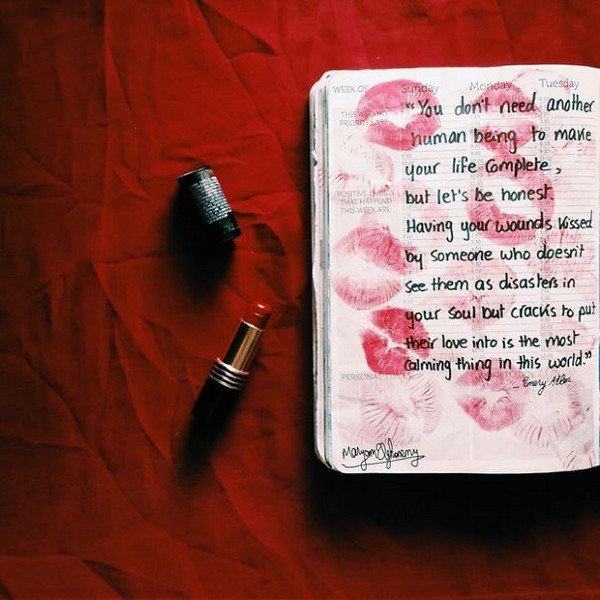 WEEK OF Sunday Monday Tuesday
THIS WEEK'S
PRIORITIES ARE
"You don't need another
human being to make
your life complete,
but let's be honest
POSITIVE THINGS
THAT HAPPENED
THIS WEEK ARE
Having your wounds kissed
by someone who doesn't
see them as disasters in
your soul but cracks to put
their love into is the most
calming thing in this world."
Emery Allen
PERSONAL